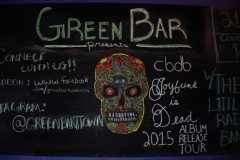 GREEN BAR
presents
CONNECT
WITH US!!
www.facebook
@GREENBARTTOWN
cbdb
Joyfunk
is
Dead
2015 ALBUM
RELEASE
TOUR
W/ THE
LITTL
RAT
BAN